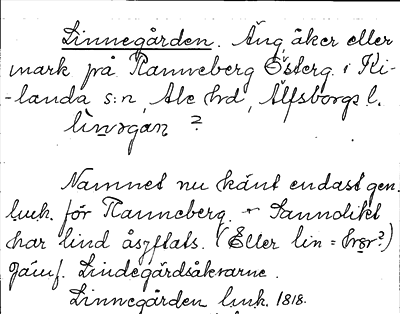 Linnegården. Äng, åker eller
mark på Ranneberg Österg. i Ki-
-landa s:n, Ale hd, Älfsborgs l.
linɤgan ?
Namnet nu känt endast gen.
luk. för Ranneberg. - Sannolikt
har lind åsyftats. (Eller lin = hvor?)
Jämf. Lindegärdsåkrarne.
Linnegården luk. 1818.